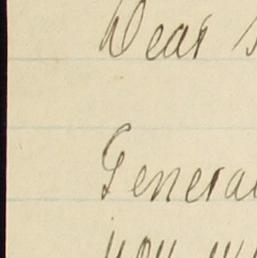 Dear
General
you